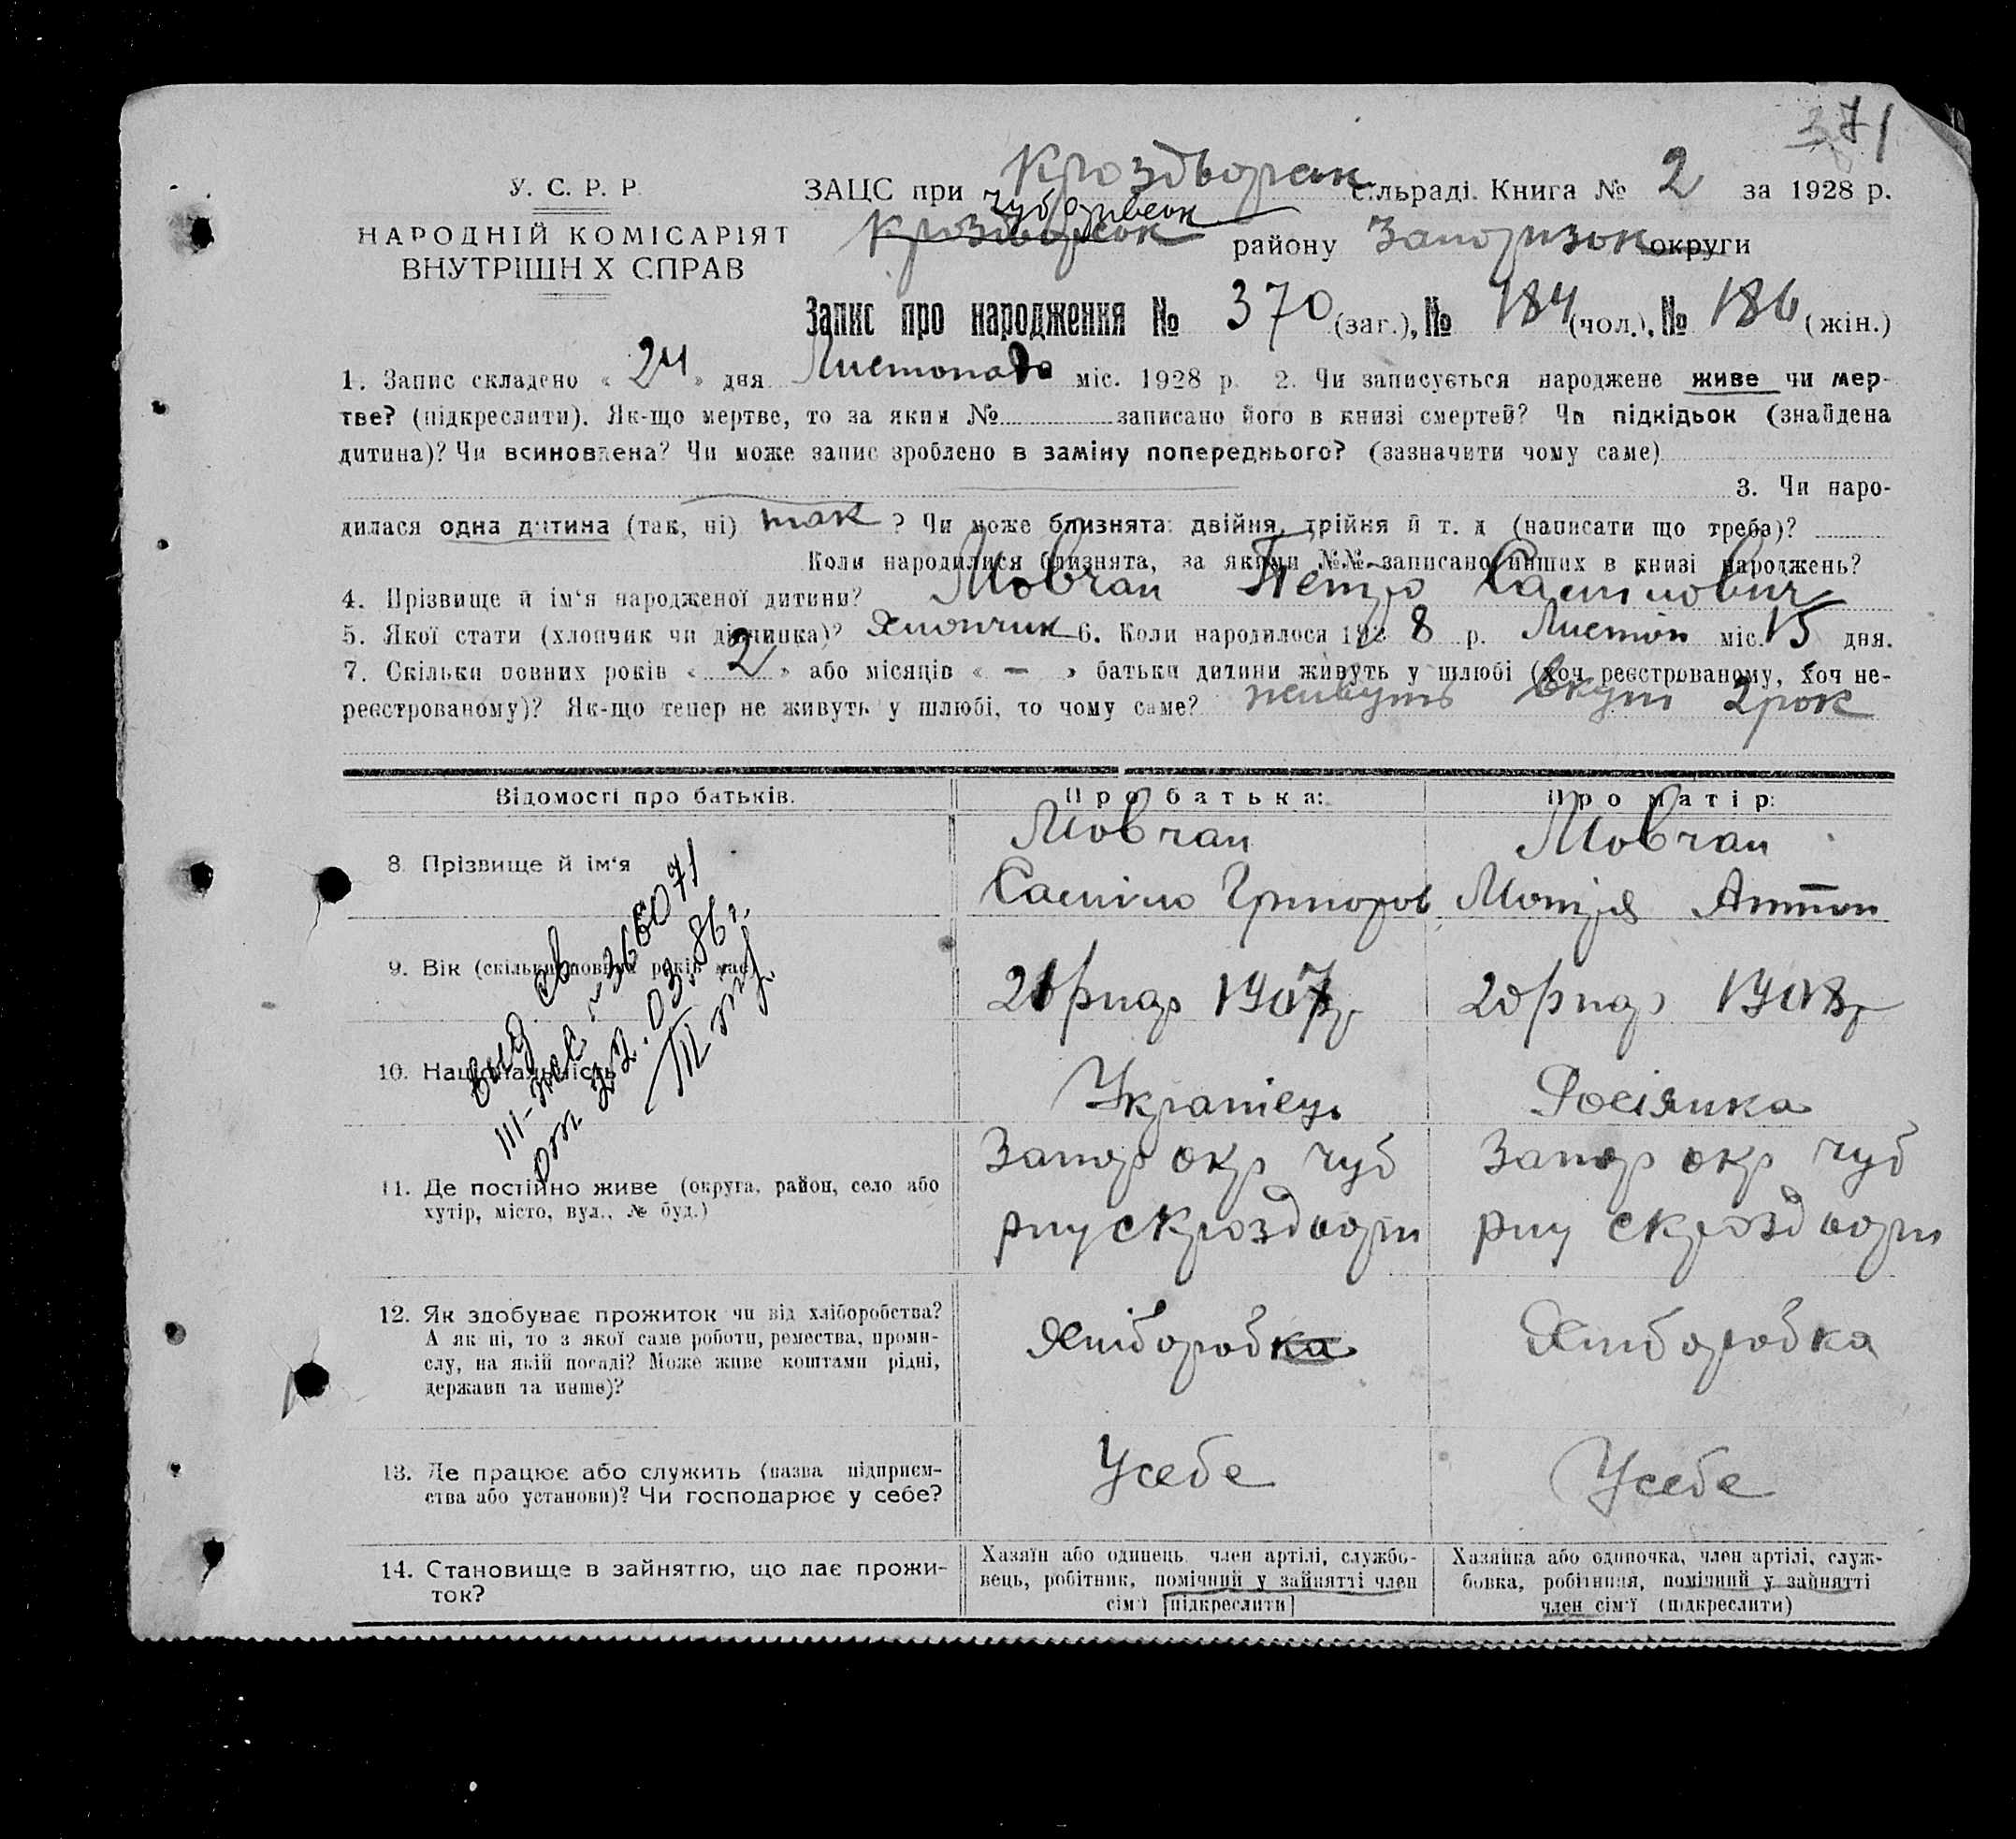 371
У. С. Р. Р.
НАРОДНІЙ КОМІСАРІЯТ
ВНУТРІШН Х СПРАВ
ЗАЦС при Кроздворск сільраді. Книга № 2 за 1928 р.
Чубарівськ
Кроздворсок району Запоризок округи
Запис про народження № 370 (заг.), № 184 (чол.), № 186 (жін.)
1. Запис складено « 24 » дня Листопада міс. 1928 р. 2. Чи записується народжене живе чи мер-
тве? (підкреслити). Як-що мертве, то за яким № записано його в книзі смертей? Чи підкідьок (знайдена
дитина)? Чи всиновлена? Чи може запис зроблено в заміну попереднього? (зазначити чому саме)
3. Чи наро-
дилася одна дитина (так, ні) так ? Чи може близнята: двійня, трійня й т. д (написати що треба)?
Коли народилися близнята, за якими №№ записано інших в книзі народжень?
4. Прізвище й ім‘я народженої дитини? Мовчан Петро Саміилович
5. Якої статі (хлопчик чи дівчинка)? Хлопчик 6. Коли народилося 192 8 р. Листоп міс. 15 дня.
7. Скільки повних років « 2 » або місяців « — » батьки дитини живуть у шлюбі (хоч реєстрованому, хоч не-
реєстрованому)? Як-що тепер не живуть у шлюбі, то чому саме? живуть вкупі 2 рок
Відомості про батьків.
Про батька:
Про матір:
8. Прізвище й ім‘я
Мовчан
Григоров
Мовчан
Мотря Антон
9. Вік (скільки повних років має)
21 рид 1907р
20 рид 1908р
10. Національність
Українець
Росіянка
вид. св.
III-жс № 366071
от 22.03.86 г.
11. Де постійно живе (округа, район, село або
хутір, місто, вул., № буд.)
Запор окр Чуб
рну с Кроздвори
Запор окр Чуб
рну с Кроздвори
12. Як здобуває прожиток чи від хліборобства?
А як ні, то з якої саме роботи, ремества, проми-
слу, на якій посаді? Може живе коштами рідні,
держави та инше)?
Хліборобка
Хліборобка
13. Де працює або служить (назва підприєм-
ства або установи)? Чи господарює у себе?
Усебе
Усебе
14. Становище в зайняттю, що дає прожи-
ток?
Хазяїн або одинець, член артілі, службо-
вець, робітник, помічний у зайнятті член
сім‘ї [підкреслити]
Хазяйка або одиночка, член артілі, служ-
бовка, робітниця, помічний у зайнятті
член сім‘ї (підкреслити)